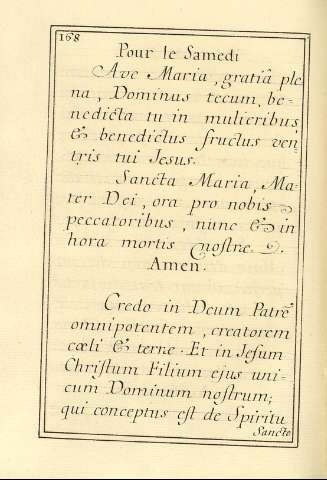 168
Pour le Samedi
Ave Maria, gratiâ ple
na, Dominus tecum, be=
nedicta tu in mulieribus
& benedictus fructus ven
tris tui Jesus.
Sancta Maria, Ma-
ter Dei, ora pro nobis
peccatoribus, nunc & in
hora mortis nostræ.
Amen.
Credo in Deum Patrẽ
omnipotentem, creatorem
cœli & terræ. Et in Jesum
Christum Filium ejus uni-
cum Dominum nostrum;
qui conceptus est de Spiritu
Sancto